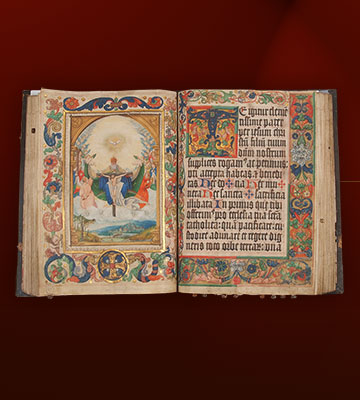 TE igitur cleme
tissime pater
per iesum chri
stū filiū tuum
dūm nostrum
supplices rogamꝰ ac petimus:
vti accepta habeas
Hec do✠na Hec mu✠
nera Hec sancta ✠ sacrificia
illibata In primis que tibi
offerimꝰ pro ecclesia tua sctā
catholica: quā pacificare: cu
stodire adunare et regere dig
neris toto orbe terraꝝ: vnā